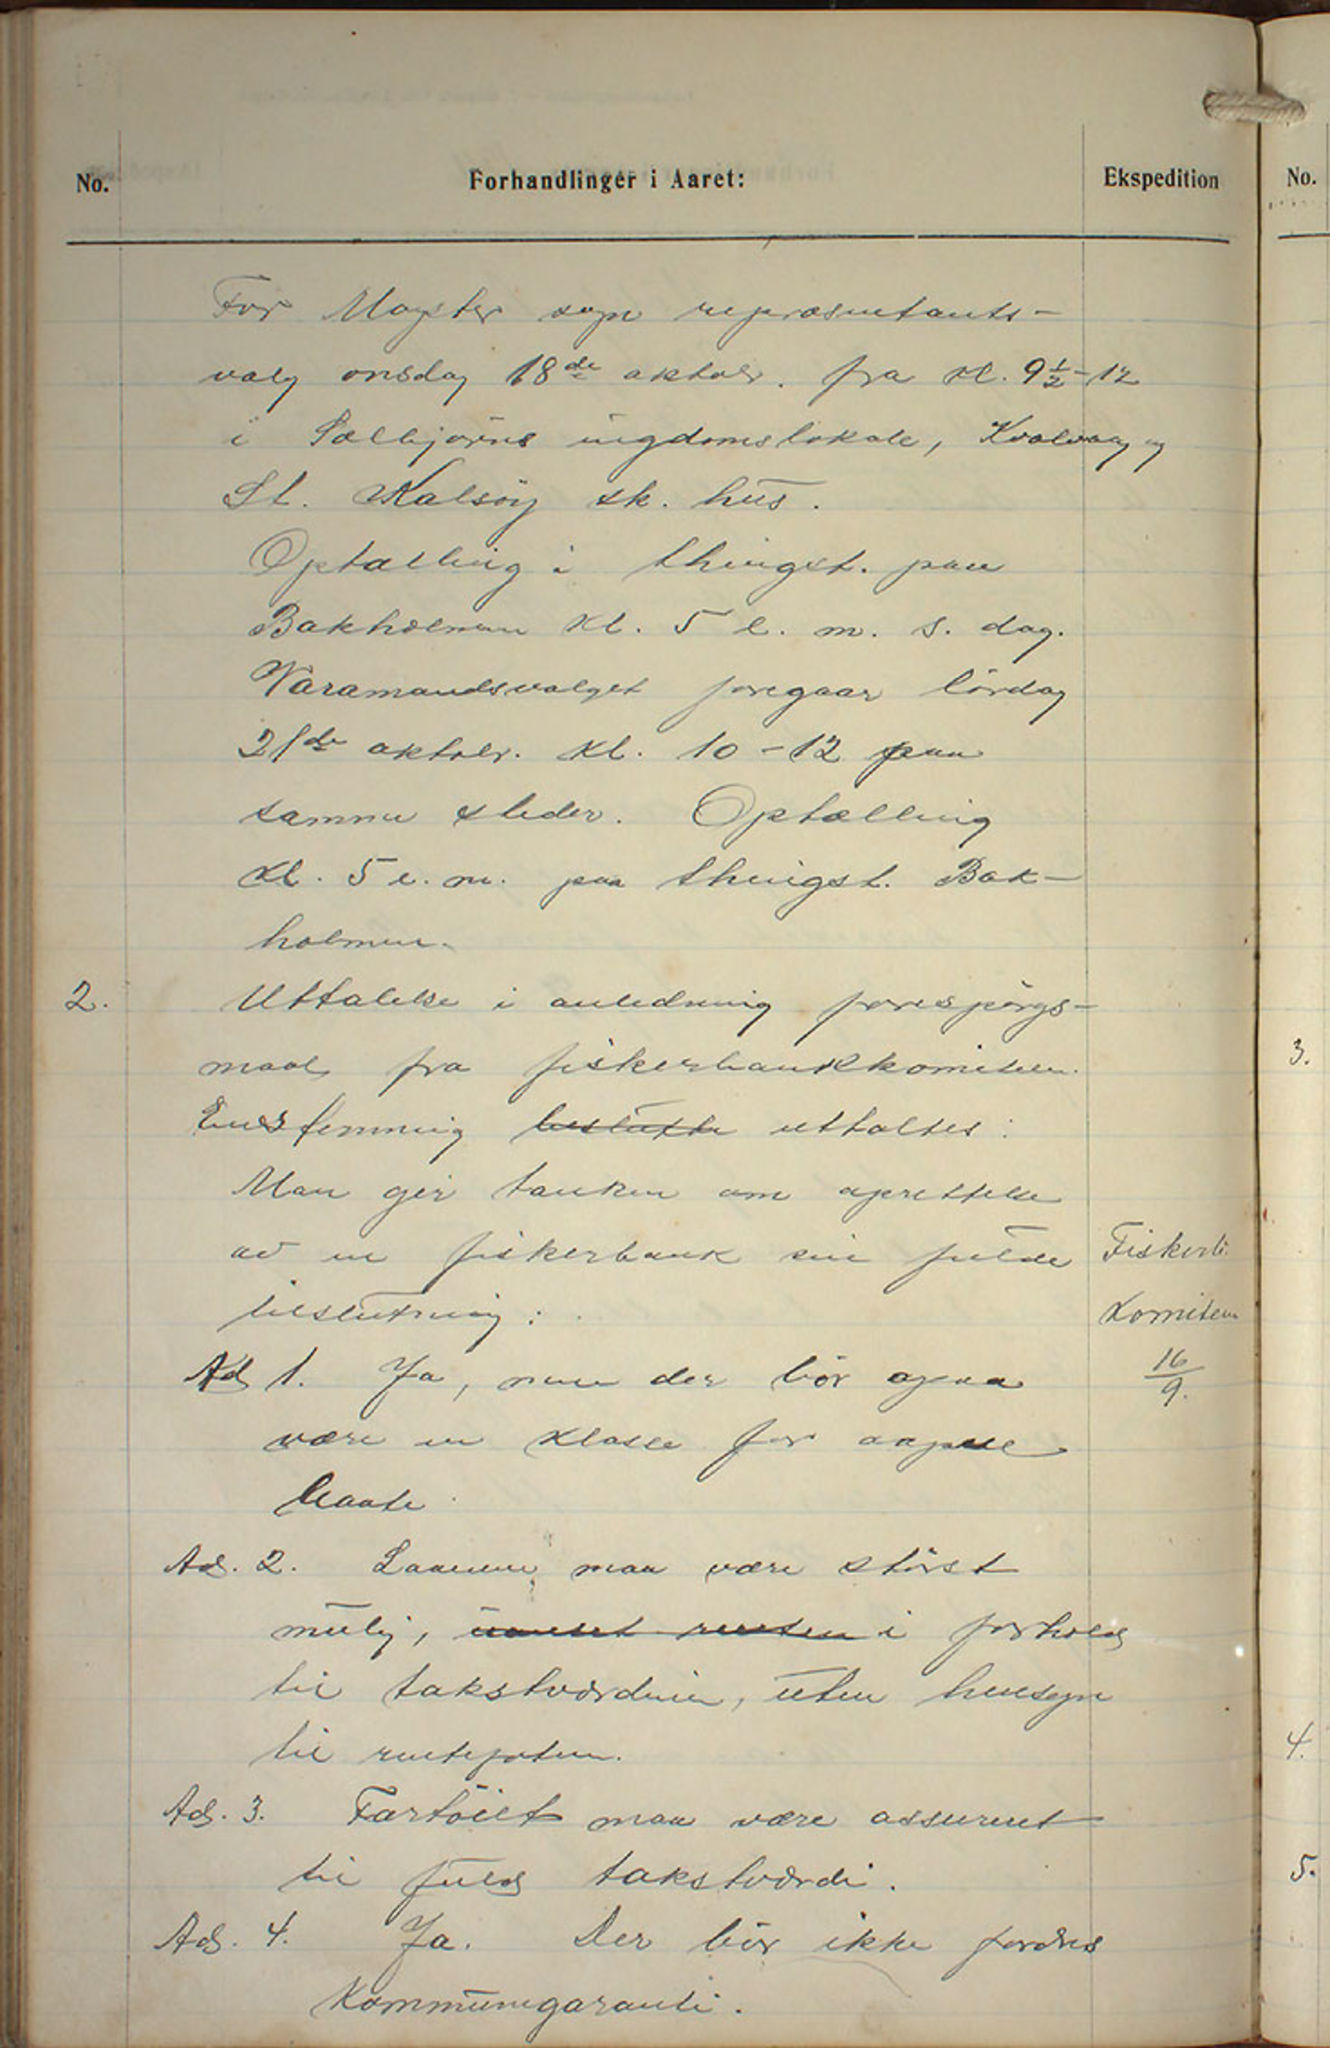 No.
Forhandlinger i Aaret:
Ekspedition
No.
For Møgster sogn repræsentants-
valg onsdag 18de oktobr. fra kl. 9½-12
i Sælbjørns ungdomslokale, Kvalvaag og
St. Kalsöy sk. hus.
Optælling i thingst. paa
Bakholmen kl. 5 e. m. s. dag.
Varamandsvalget foregaar lördag
21de oktobr. kl. 10-12 paa
samme steder. Optælling
kl. 5 e. m. paa thingst. Bak-
holmen.
2. Uttalelse i anledning forespörgs-
maal fra fiskerbankkomiteen.
Enstemmig beslutte uttaltes:
Man gir tanken om oprettelse
av en fiskerbank sin fulde
tilslutning:
Fiskerb.
Komiteen
16/9.
Ad 1. Ja, men der bör ogsaa
være en klasse for aapne
baate.
Ad. 2. Laanene maa være störst
mulig, uanset renten i forhold
til takstværdien, uten hensyn
til rentefoten.
Ad. 3. Fartöiet maa være assureret
til fuld takstværdi.
Ad. 4. Ja. Der bör ikke fordres
kommunegaranti.
3.
4.
5.